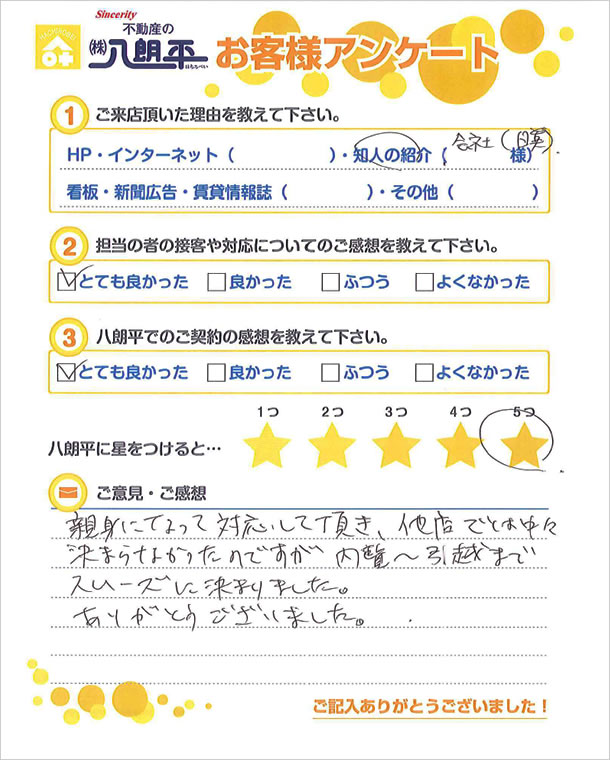 HACHIROBEI
Sincerity
不動産の
(株)八朗平
はちろべい
お客様アンケート
1 ご来店頂いた理由を教えて下さい。
HP・インターネット( )・知人の紹介(会社 様)
看板・新聞広告・賃貸情報誌( )・その他( )
2 担当の者の接客や対応についてのご感想を教えて下さい。
とても良かった 良かった ふつう よくなかった
3 八朗平でのご契約の感想を教えて下さい。
とても良かった 良かった ふつう よくなかった
1つ 2つ 3つ 4つ 5つ
八朗平に星をつけると…
ご意見・ご感想
親身になって対応して頂き、他店では中々
決まらなかったのですが内覧〜引越まで
スムーズに決まりました。
ありがとうございました。
ご記入ありがとうございました!